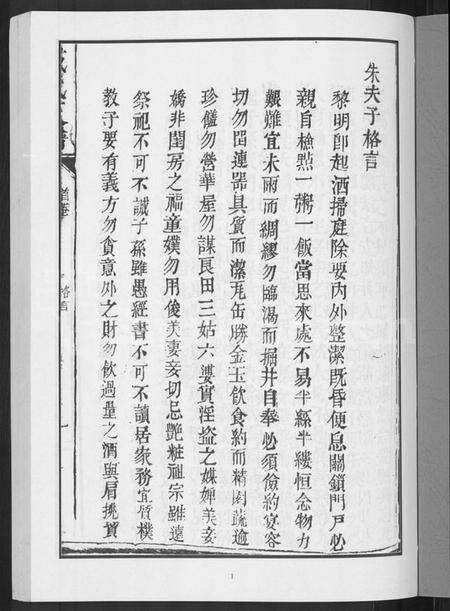 朱夫子格言
黎明卽起洒掃庭除要內外整潔旣昏便息關鎖門戶必
親自檢㸃一粥一飯當思來處不易半絲半縷恒念物力
艱難宜未雨而綢繆勿臨渴而掘井自奉必須儉約宴客
切勿留連器具質而潔瓦缶勝金玉飲食約而精園蔬逾
珍饈勿營華屋勿謀良田三姑六婆實淫盜之媒婢美妾
嬌非閨房之福童僕勿用俊美妻妾切忌艷粧祖宗雖遠
祭祀不可不誠子孫雖愚經書不可不讀居家務宜質樸
教子要有義方勿貪意外之財勿飲過量之酒與肩挑貿
格言
一
1